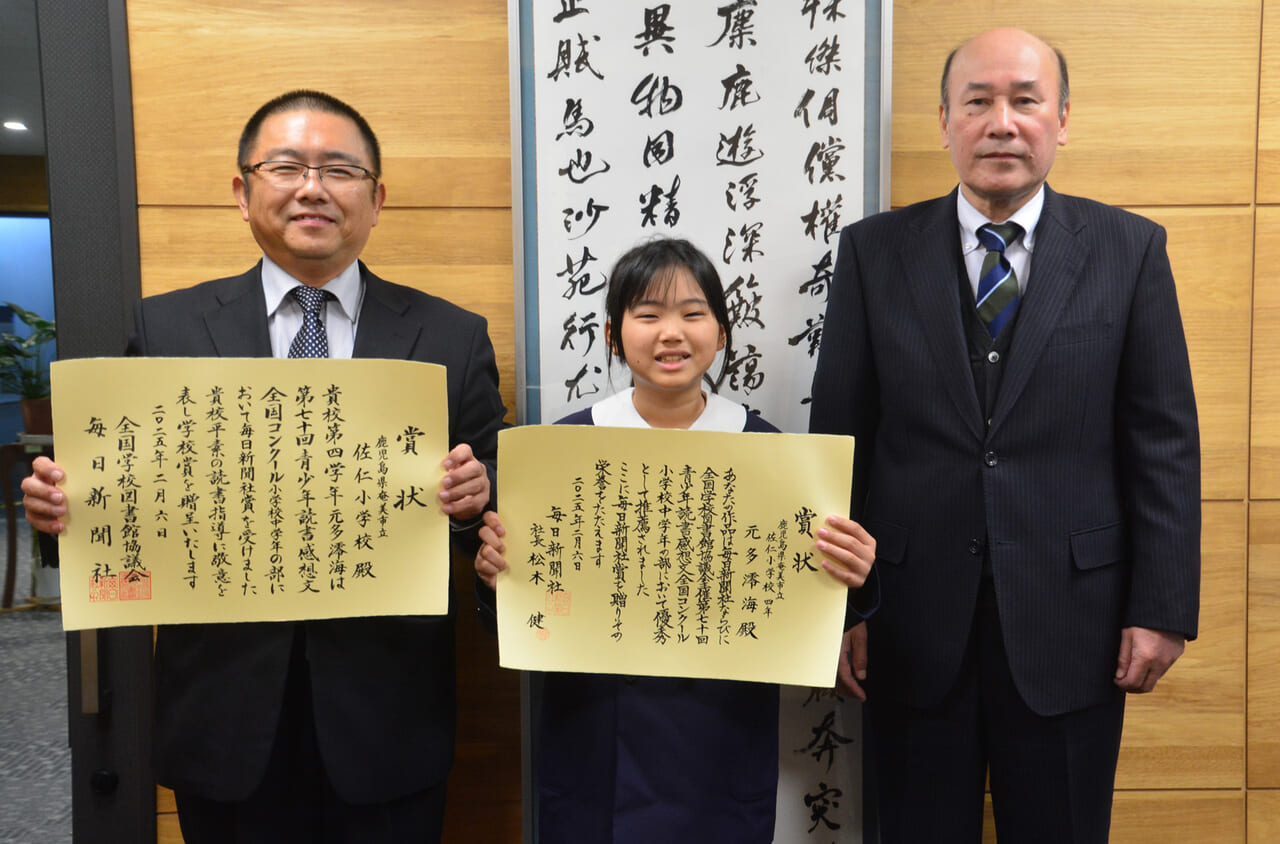 賞状
鹿児島県奄美市立
佐仁小学校殿
貴校第四学年元多澪海は
第七十回青少年読書感想文
全国コンクール小学校中学年の部に
おいて毎日新聞社賞を受けました
貴校平素の読書指導に敬意を
表し学校賞を贈呈いたします
二〇二五年二月六日
全国学校図書館協議会
毎日新聞社
賞状
鹿児島県奄美市立
佐仁小学校 四年
元多澪海殿
あなたの作品は毎日新聞社ならびに
全国学校図書館協議会主催第七十回
青少年読書感想文全国コンクール
小学校中学年の部において優秀
として推薦されました
ここに毎日新聞社賞を贈りその
栄誉をたたえます
二〇二五年二月六日
毎日新聞社
社長 松木 健
傑倜儻權奇
麋鹿遊浮深
異物同精
賦馬也沙苑行
奔突